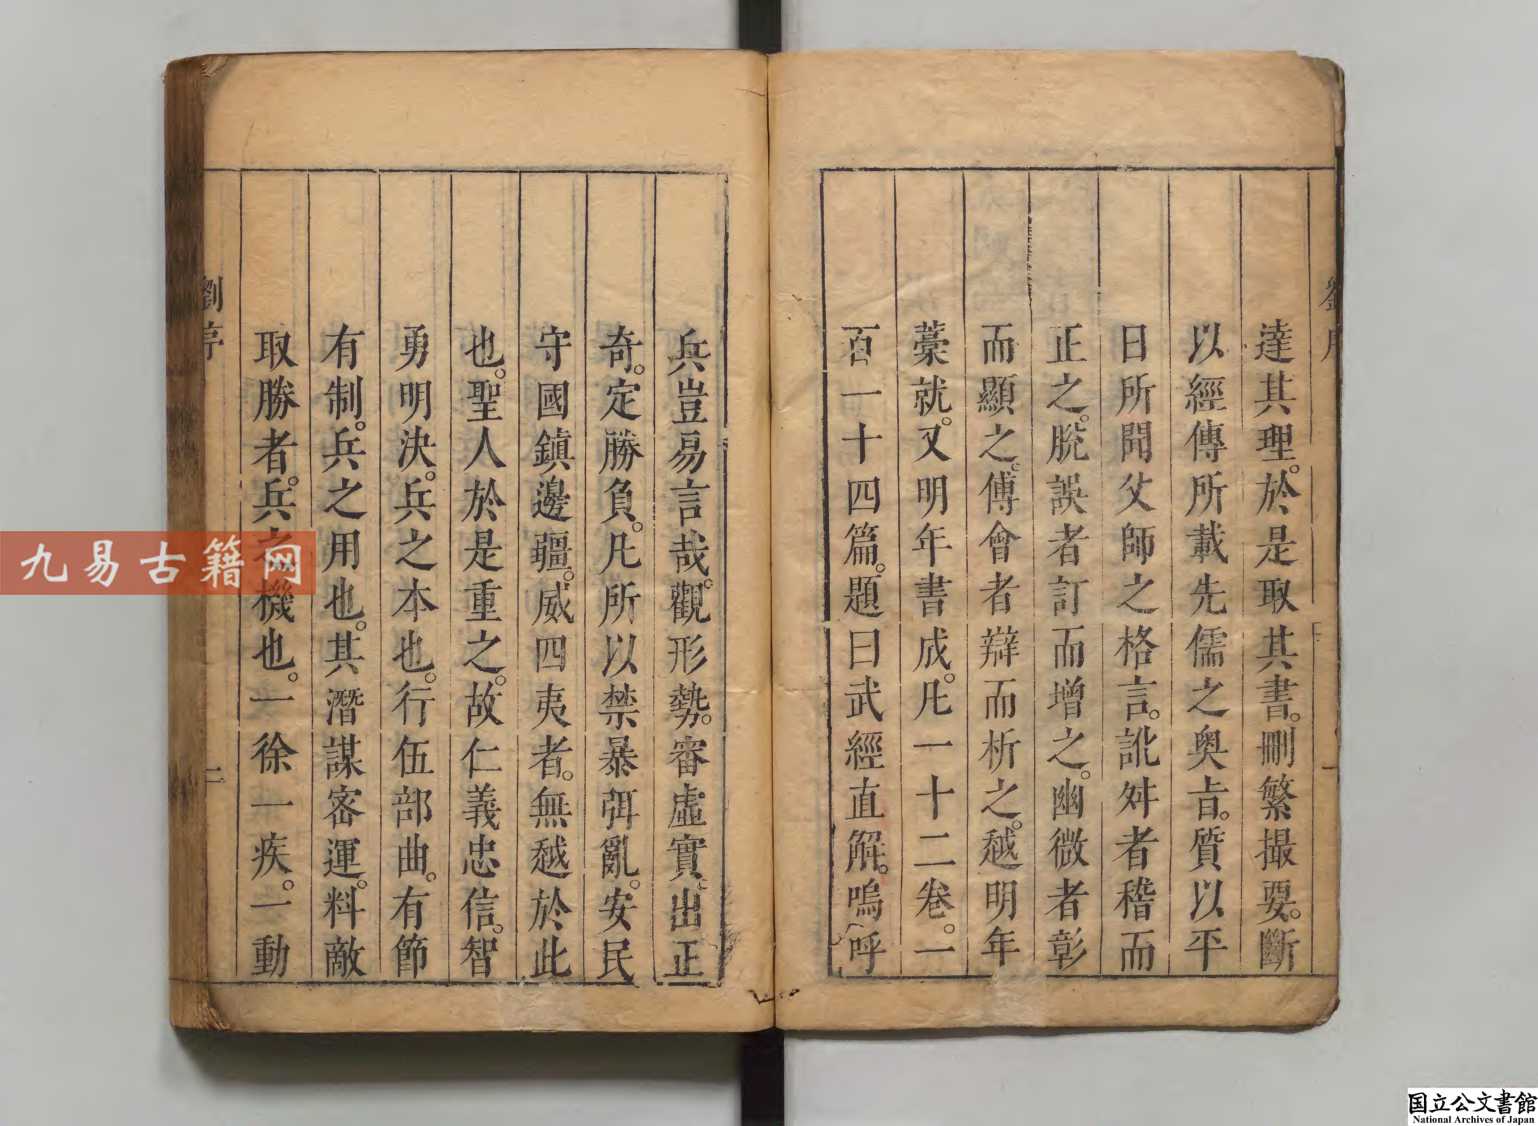 達其理。於是取其書。刪繁撮要。斷
以經傳所載先儒之奥旨。質以平
日所聞父師之格言。訛舛者稽而
正之。脫誤者訂而增之。幽微者彰
而顯之。傅會者辯而析之。越明年
藁就。又明年書成。凡一十二卷。一
百一十四篇。題曰武經直解。嗚呼
兵豈易言哉。觀形勢。審虛實。出正
奇。定勝負。凡所以禁暴弭亂。安民
守國鎮邊疆。威四夷者。無越於此
也。聖人於是重之。故仁義忠信。智
勇明決。兵之本也。行伍部曲。有節
有制。兵之用也。其潛謀密運。料敵
取勝者。兵之機也。一徐一疾。一動
劉序
二
九易古籍网
国立公文書館
National Archives of Japan